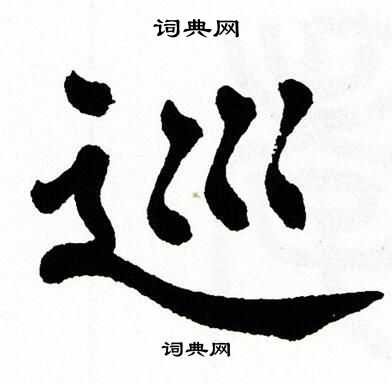 词典网
巡
词典网